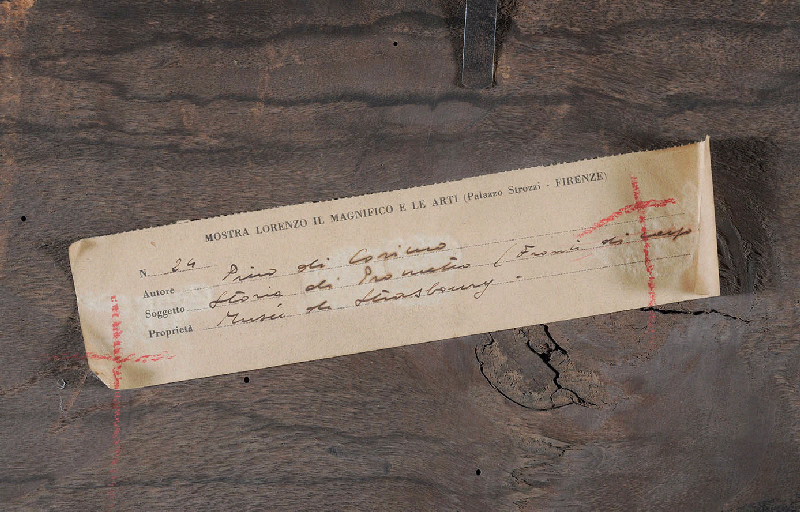 MOSTRA LORENZO IL MAGNIFICO E LE ARTI (Palazzo Strozzi - FIRENZE)
N. 24
Autore Piero di Cosimo
Soggetto Storia di Prometeo (Fronte di
Proprietà Musée de Strasbourg.